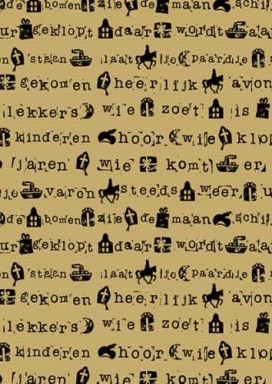 de bomen zie de maan schij
ur geklopt daar wordt a
en stalen laat je paardje
gekomen heerlijk avon
lekkers wie zoet is
kinderen hoor wie klop
jaren wie komt er
varen steeds weer u
de bomen zie de maan schij
ur geklopt daar wordt a
en stalen laat je paardje
gekomen heerlijk avon
lekkers wie zoet is
kinderen hoor wie klop